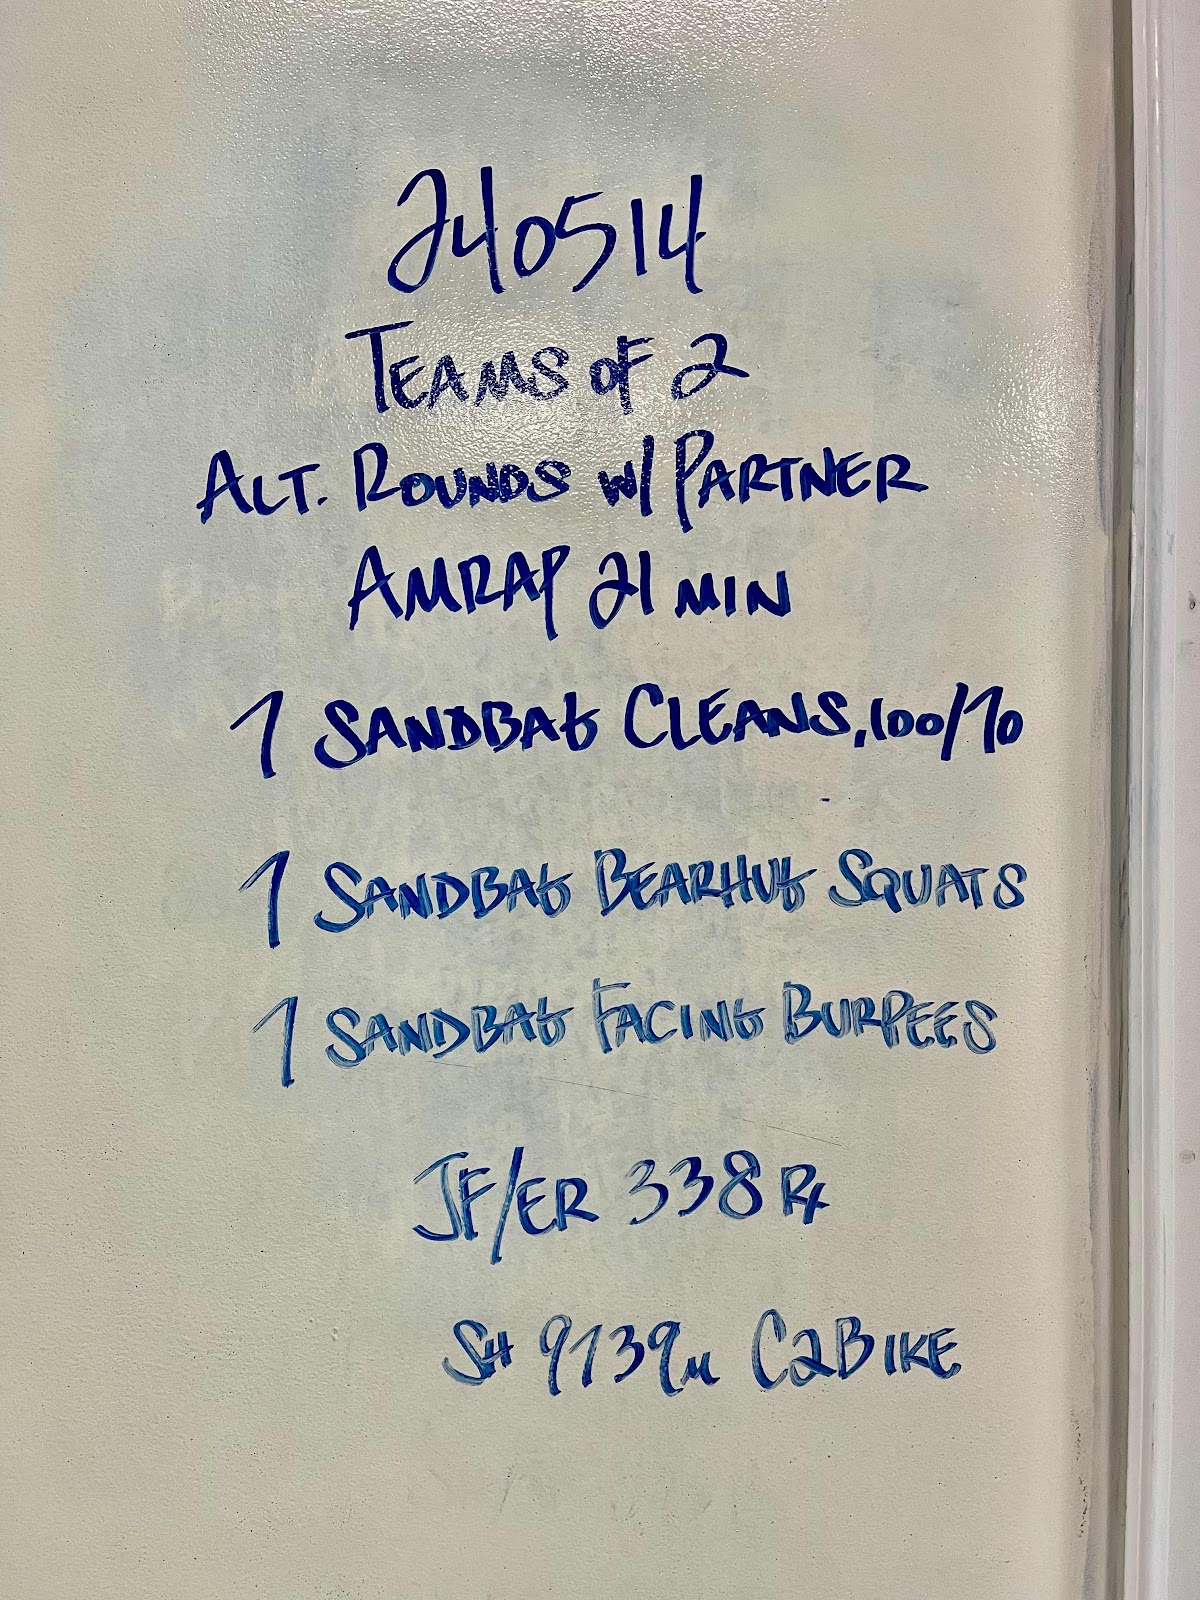 240514
TEAMS OF 2
ALT. ROUNDS W/ PARTNER
AMRAP 21 MIN
7 SANDBAG CLEANS, 100/70
7 SANDBAG BEARHUG SQUATS
7 SANDBAG FACING BURPEES
JF/ER 338 Rx
SH 9739M C2BIKE